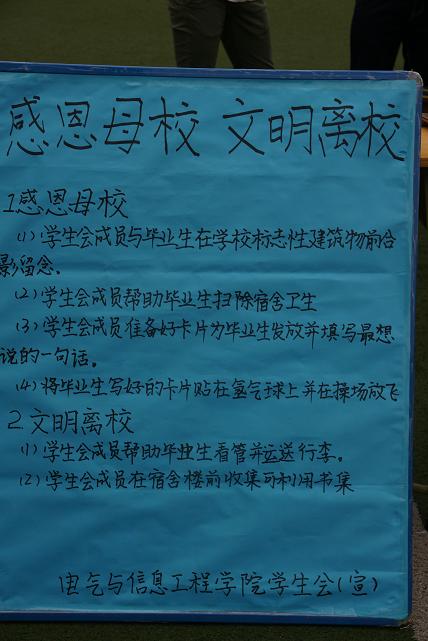 感恩母校 文明离校
1.感恩母校
(1)学生会成员与毕业生在学校标志性建筑物前合
影留念。
(2)学生会成员帮助毕业生扫除宿舍卫生
(3)学生会成员准备好卡片为毕业生发放并填写最想
说的一句话。
(4)将毕业生写好的卡片贴在氢气球上并在操场放飞
2.文明离校
(1)学生会成员帮助毕业生看管并运送行李。
(2)学生会成员在宿舍楼前收集可利用书集
电气与信息工程学院学生会(宣)